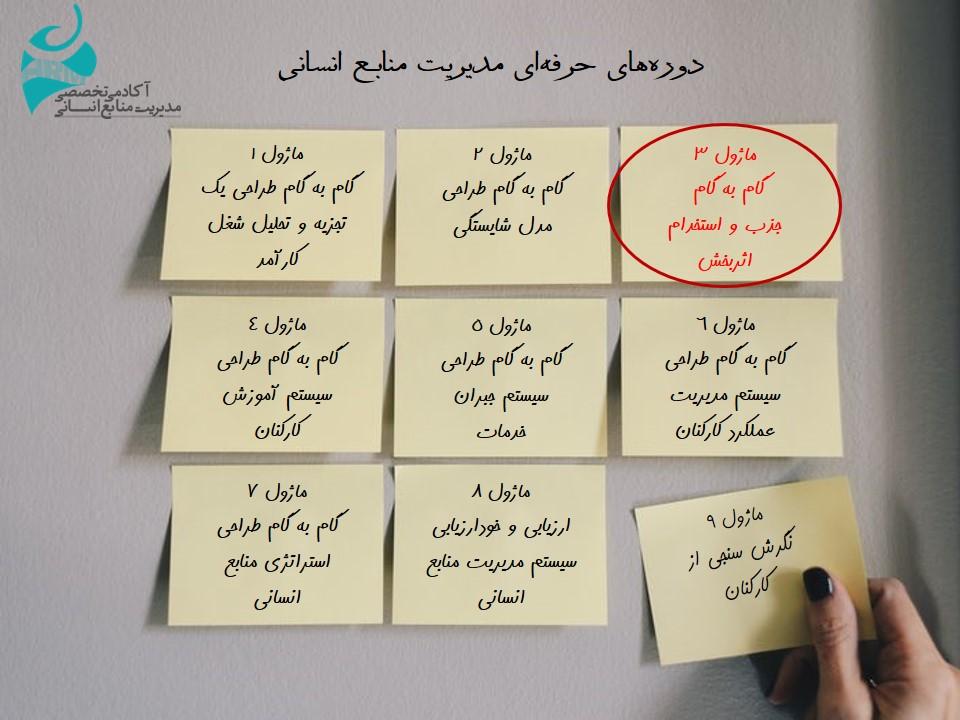 آکادمی تخصصی
مدیریت منابع انسانی
دوره‌های حرفه‌ای مدیریت منابع انسانی
ماژول ۱
گام به گام طراحی یک
تجزیه و تحلیل شغل
کارآمد
ماژول ۲
گام به گام طراحی
مدل شایستگی
ماژول ۳
گام به گام
جذب و استخدام
اثربخش
ماژول ٤
گام به گام طراحی
سیستم آموزش
کارکنان
ماژول ٥
گام به گام طراحی
سیستم جبران
خدمات
ماژول ٦
گام به گام طراحی
سیستم مدیریت
عملکرد کارکنان
ماژول ۷
گام به گام طراحی
استراتژی منابع
انسانی
ماژول ۸
ارزیابی و خودارزیابی
سیستم مدیریت منابع
انسانی
ماژول ۹
نگرش سنجی از
کارکنان